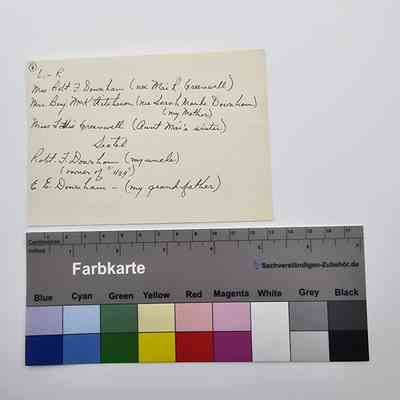 L - R
Mrs Robt F. Downham (nee Mai R Greenwell)
Mrs Benj McK Hutcheson (nee Sarah Downham)
(my Mother)
Miss Greenwell (Aunt Mai's sister)
Seated
Robt. F. Downham (my uncle)
(owner of "409")
E E. Downham - (my grandfather)
Centimetres
Inches
Farbkarte
Sachverständigen-Zubehör.de
Blue Cyan Green Yellow Red Magenta White Grey Black